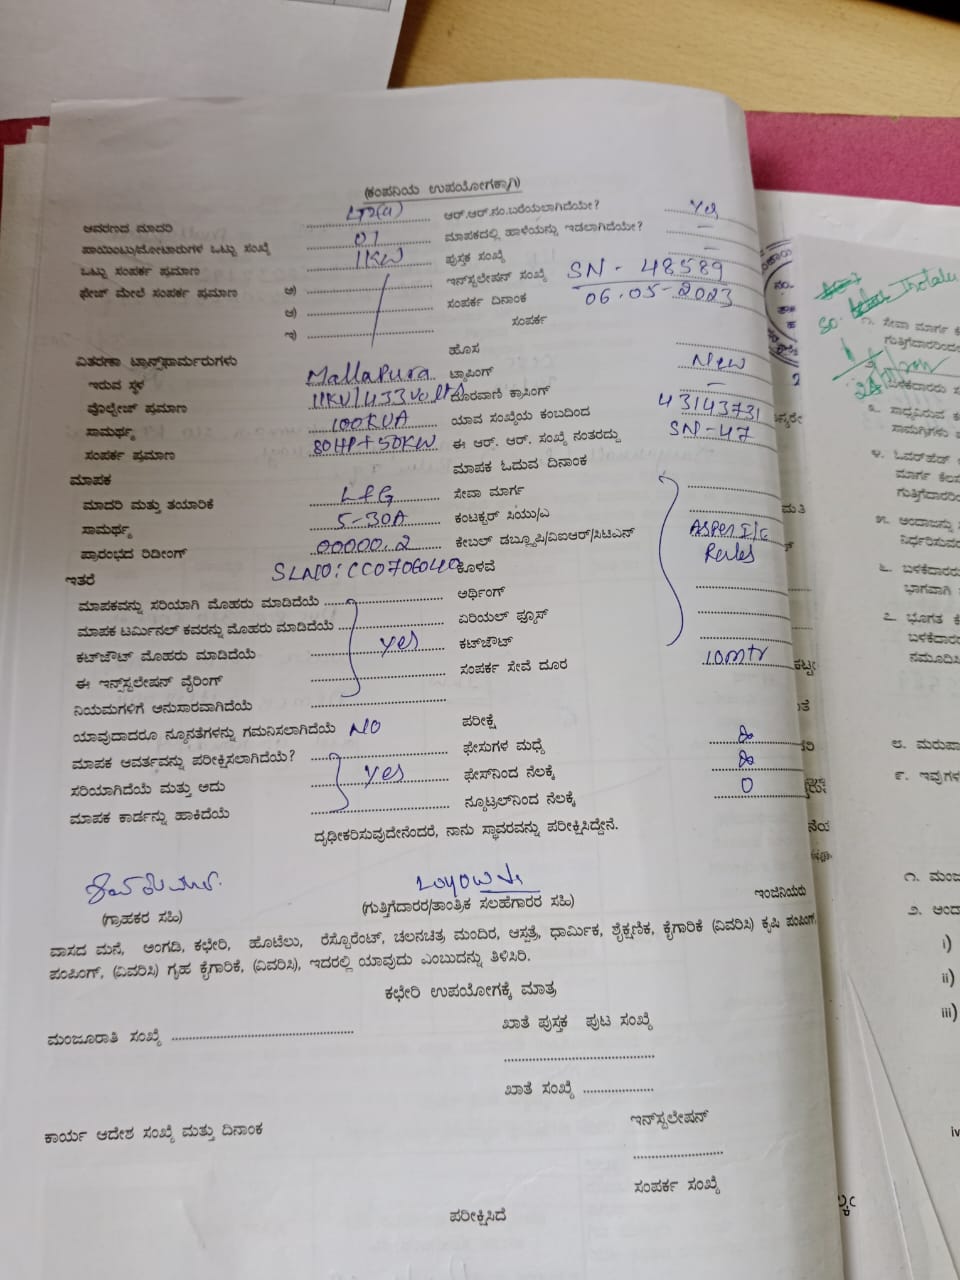 (ಕಂಪನಿಯ ಉಪಯೋಗಕ್ಕಾಗಿ)
ಆವರಣದ ಮಾದರಿ LT2(a) ಆರ್.ಆರ್.ನಂ.ಬರೆಯಲಾಗಿದೆಯೇ? Yes
ಪಾಯಿಂಟು/ಮೋಟಾರುಗಳ ಒಟ್ಟು ಸಂಖ್ಯೆ 01 ಮಾಪಕದಲ್ಲಿ ಹಾಳೆಯನ್ನು ಇಡಲಾಗಿದೆಯೇ? –
ಒಟ್ಟು ಸಂಪರ್ಕ ಪ್ರಮಾಣ 1KW ಪುಸ್ತಕ ಸಂಖ್ಯೆ –
ಫೇಜ್ ಮೇಲೆ ಸಂಪರ್ಕ ಪ್ರಮಾಣ ಅ) ಇನ್‌ಸ್ಟಲೇಷನ್ ಸಂಖ್ಯೆ SN - 48589
ಆ) ಸಂಪರ್ಕ ದಿನಾಂಕ 06.05-2023
ಇ) ಸಂಪರ್ಕ
ವಿತರಣಾ ಟ್ರಾನ್ಸ್‌ಫಾರ್ಮರುಗಳು ಹೊಸ New
ಇರುವ ಸ್ಥಳ Mallapura ಟ್ಯಾಪಿಂಗ್ –
ವೋಲ್ಟೇಜ್ ಪ್ರಮಾಣ 11KV/433Volts ದೂರವಾಣಿ ಕ್ರಾಸಿಂಗ್
ಸಾಮರ್ಥ್ಯ 100KVA ಯಾವ ಸಂಖ್ಯೆಯ ಕಂಬದಿಂದ 43143731
ಸಂಪರ್ಕ ಪ್ರಮಾಣ 80HP+50KW ಈ ಆರ್. ಆರ್. ಸಂಖ್ಯೆ ನಂತರದ್ದು SN-47
ಮಾಪಕ ಮಾಪಕ ಓದುವ ದಿನಾಂಕ
ಮಾದರಿ ಮತ್ತು ತಯಾರಿಕೆ L&G ಸೇವಾ ಮಾರ್ಗ
ಸಾಮರ್ಥ್ಯ 5-30A ಕಂಟಕ್ಟರ್ ಸಿಯು/ಎ
ಪ್ರಾರಂಭದ ರೀಡಿಂಗ್ 00000.2 ಕೇಬಲ್ ಡಬ್ಲೂಪಿ/ವಿಐಆರ್/ಸಿಟಿಎಸ್ Asper I/C Rules
ಇತರೆ SLNO:CC0706040 ಕೊಳವೆ
ಮಾಪಕವನ್ನು ಸರಿಯಾಗಿ ಮೊಹರು ಮಾಡಿದೆಯೆ ಅರ್ಥಿಂಗ್
ಮಾಪಕ ಟರ್ಮಿನಲ್ ಕವರನ್ನು ಮೊಹರು ಮಾಡಿದೆಯೆ ಏರಿಯಲ್ ಫ್ಯೂಸ್
ಕಟ್‌ಔಟ್ ಮೊಹರು ಮಾಡಿದೆಯೆ yes ಕಟ್‌ಔಟ್
ಈ ಇನ್ಸ್ಟಲೇಷನ್ ವೈರಿಂಗ್ ಸಂಪರ್ಕ ಸೇವೆ ದೂರ 10mtr
ನಿಯಮಗಳಿಗೆ ಅನುಸಾರವಾಗಿದೆಯೆ
ಯಾವುದಾದರೂ ನ್ಯೂನತೆಗಳನ್ನು ಗಮನಿಸಲಾಗಿದೆಯೆ NO ಪರೀಕ್ಷೆ
ಮಾಪಕ ಆವರ್ತವನ್ನು ಪರೀಕ್ಷಿಸಲಾಗಿದೆಯೆ? ಫೇಸುಗಳ ಮಧ್ಯೆ ∞
ಸರಿಯಾಗಿದೆಯೆ ಮತ್ತು ಅದು yes ಫೇಸ್‌ನಿಂದ ನೆಲಕ್ಕೆ ∞
ಮಾಪಕ ಕಾರ್ಡನ್ನು ಹಾಕಿದೆಯೆ ನ್ಯೂಟ್ರಲ್‌ನಿಂದ ನೆಲಕ್ಕೆ 0
ದೃಢೀಕರಿಸುವುದೇನೆಂದರೆ, ನಾನು ಸ್ಥಾವರವನ್ನು ಪರೀಕ್ಷಿಸಿದ್ದೇನೆ.
(ಗ್ರಾಹಕರ ಸಹಿ) (ಗುತ್ತಿಗೆದಾರರ/ತಾಂತ್ರಿಕ ಸಲಹೆಗಾರರ ಸಹಿ) ಇಂಜಿನಿಯರು
ವಾಸದ ಮನೆ, ಅಂಗಡಿ, ಕಛೇರಿ, ಹೊಟೆಲು, ರೆಸ್ಟೊರೆಂಟ್, ಚಲನಚಿತ್ರ ಮಂದಿರ, ಆಸ್ಪತ್ರೆ, ಧಾರ್ಮಿಕ, ಶೈಕ್ಷಣಿಕ, ಕೈಗಾರಿಕೆ (ವಿವರಿಸಿ) ಕೃಷಿ ಪಂಪಿಂಗ್
ಪಂಪಿಂಗ್, (ವಿವರಿಸಿ) ಗೃಹ ಕೈಗಾರಿಕೆ, (ವಿವರಿಸಿ), ಇದರಲ್ಲಿ ಯಾವುದು ಎಂಬುದನ್ನು ತಿಳಿಸಿರಿ.
ಕಛೇರಿ ಉಪಯೋಗಕ್ಕೆ ಮಾತ್ರ
ಮಂಜೂರಾತಿ ಸಂಖ್ಯೆ ಖಾತೆ ಪುಸ್ತಕ ಪುಟ ಸಂಖ್ಯೆ
ಖಾತೆ ಸಂಖ್ಯೆ
ಕಾರ್ಯ ಆದೇಶ ಸಂಖ್ಯೆ ಮತ್ತು ದಿನಾಂಕ ಇನ್‌ಸ್ಟಲೇಷನ್
ಸಂಪರ್ಕ ಸಂಖ್ಯೆ
ಪರೀಕ್ಷಿಸಿದೆ